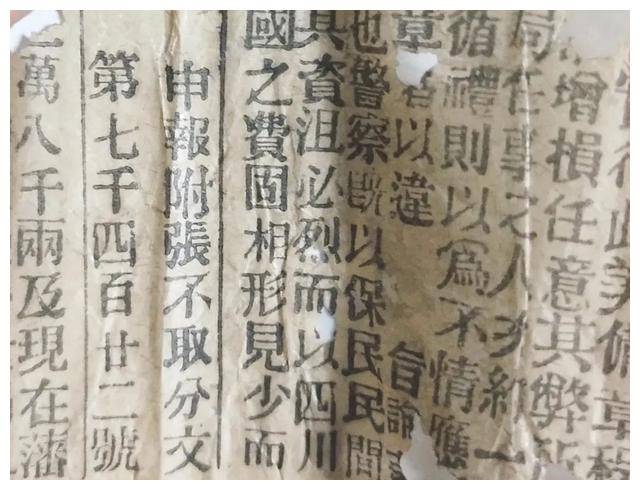 行此美備章
增損任意其弊
局任事之人
循禮則以爲不情應
章 以違 旨論
也警察旣以保民民間
其資沮必烈而以四川
國之費固相形見少而
申報附張不取分文
第七千四百廿二號
萬八千兩及現在藩